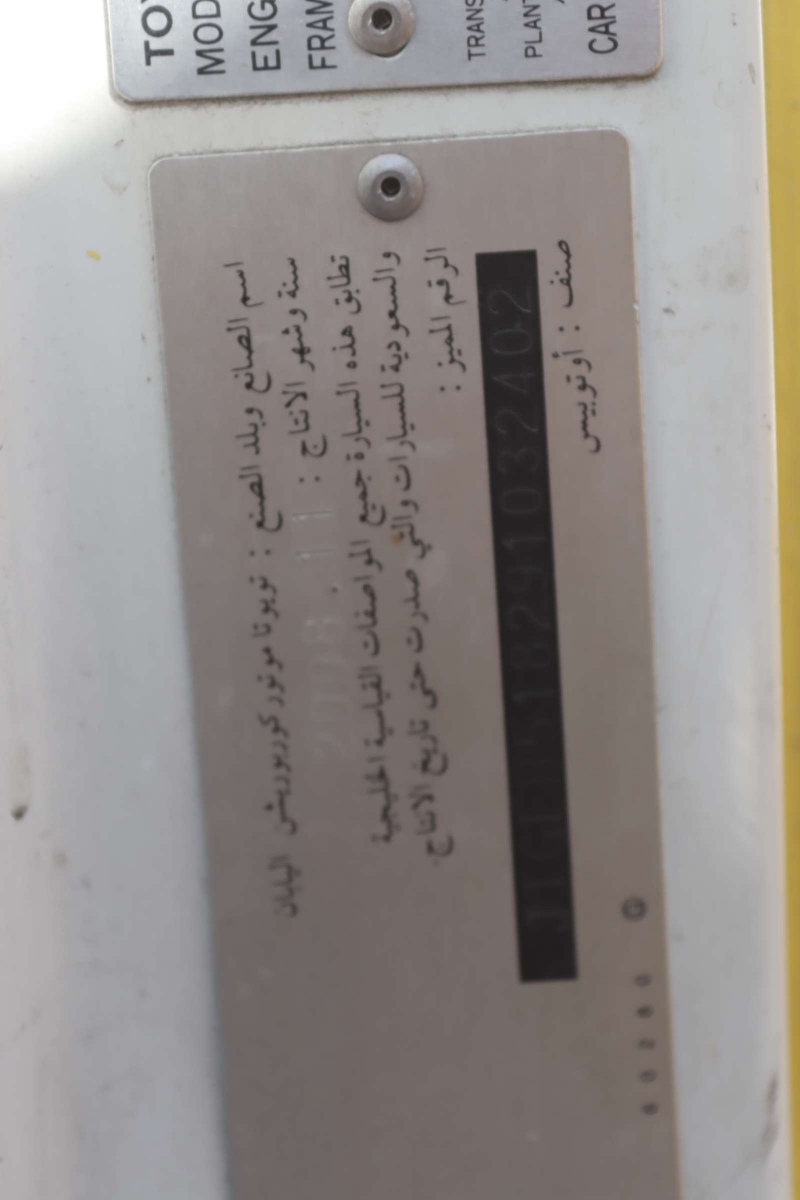 TOY
MOD
ENG
FRAM
TRANS
PLANT
CAR
اسم الصانع وبلد الصنع : تويوتا موتور كوربوريشن اليابان
سنة وشهر الانتاج : 2008. 11
تطابق هذه السيارة جميع المواصفات القياسية الخليجية
والسعودية للسيارات والتي صدرت حتى تاريخ الانتاج.
الرقم المميز :
518291032402
صنف : أوتوبيس
60280 G